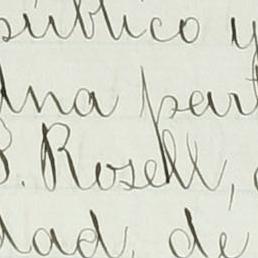 público y
una part
B. Rosell,
dad, de